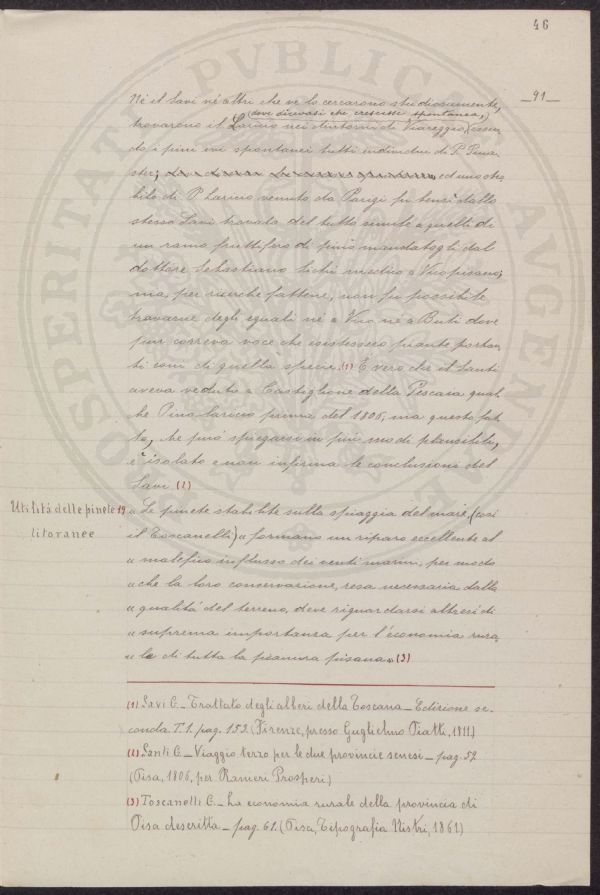 46
91
Nè il Savi nè altri che ve lo cercarono studiosamente,
(ove dicevasi che crescesse spontaneo,)
trovarono il Laricio nei dintorni di Viareggio, essen
do i pini ivi spontanei tutti individui di P. Pina
ster; ed uno stro
bilo di P. Laricio venuto da Parigi fu bensì dallo
stesso Savi trovato del tutto simile a quelli di
un ramo fruttifero di pino mandatogli dal
dottore Sebastiano medico a Vicopisano;
ma, per ricerche fattene, non fu possibile
trovarne degli eguali nè a Vico nè a Buti dove
pur correva voce che esistessero piante portan
ti coni di quella specie. (1) È vero che il Santi
aveva veduto a Castiglione della Pescaia qual
che Pino laricio prima del 1806, ma questo fat
to, che può spiegarsi in più modi plausibili,
è isolato e non infirma le conclusioni del
Savi. (2)
Utilità delle pinete
litoranee
19 « Le pinete stabilite sulla spiaggia del mare, (così
il Toscanelli) « formano un riparo eccellente al
« malefico influsso dei venti marini, per modo
« che la loro conservazione, resa necessaria dalla
« qualità del terreno, deve riguardarsi altresì di
« suprema importanza per l'economia rura
« le di tutta la pianura pisana ». (3)
(1) Savi G. - Trattato degli alberi della Toscana - Edizione se-
conda T. 1. pag. 153. (Firenze, presso Guglielmo Piatti, 1811)
(2) Santi G. - Viaggio terzo per le due provincie senesi - pag. 59.
(Pisa, 1806, per Ranieri Prosperi)
(3) Toscanelli G. - La economia rurale della provincia di
Pisa descritta - pag. 61. (Pisa, Tipografia Nistri, 1861)